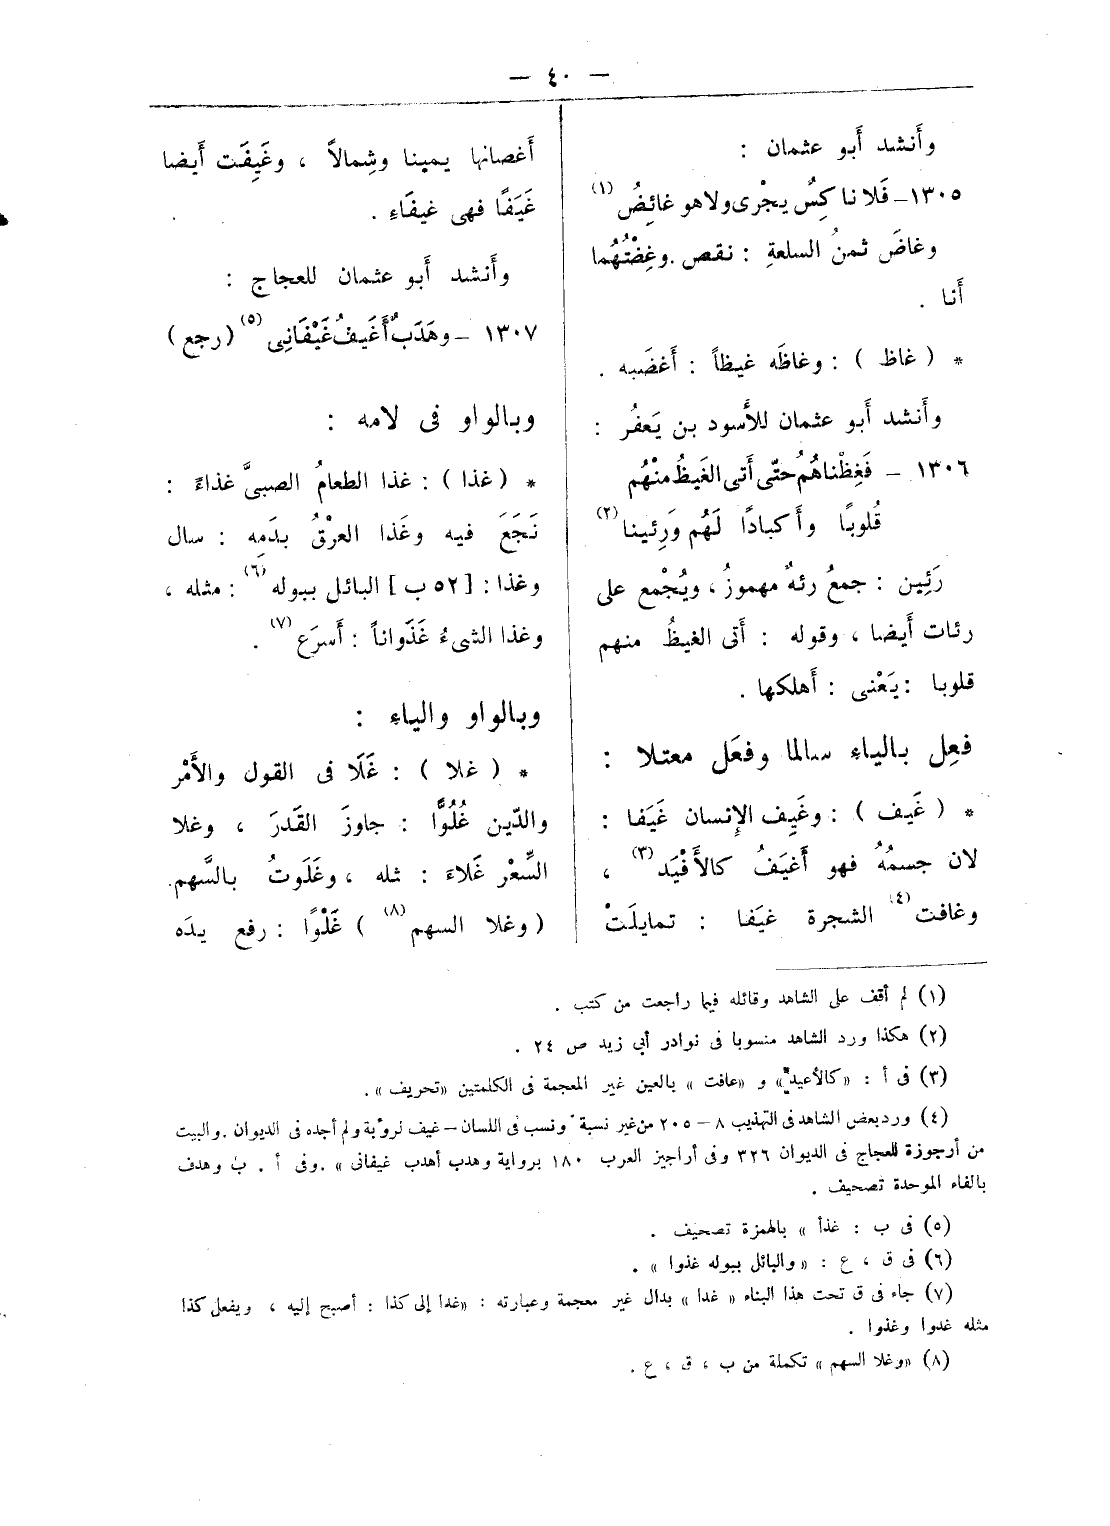 — ٤٠ —
وأَنشد أَبو عثمان :
١٣٠٥ــ فَلا ناكِسٌ يجْرى ولا هو غائِضُ (١)
وغاضَ ثمنُ السلعةِ : نقص . وغِضْتُهُما
أَنا .
* ( غاظ ) : وغاظَه غيظاً : أَغضَبه .
وأَنشد أَبو عثمان للأَسود بن يَعفُر :
١٣٠٦ ــ فَغِظْناهُمُ حتّى أَتى الغَيظُ منْهُم
قُلوبًا وأَكبادًا لَهُم وَرِئينا (٢)
رَئِين : جمعُ رئه مهموزُ ، ويُجْمع على
رئات أَيضا ، وقوله : أَتى الغيظُ منهم
قلوبا : يَعْنى : أَهلكها .
فعِل بالياء سالما وفعَل معتلا :
* ( غَيف ) : وغَيِف الإِنسان غَيَفا :
لان جسمُهُ فهو أَغيَفُ كالأَفْيَد (٣) ،
وغافت (٤) الشجرة غيَفا : تمايلَتْ
أَغصانها يمينا وشِمالاً ، وغَيِفَت أَيضا
غَيَفًا فهى غيفَاء .
وأَنشد أَبو عثمان للعجاج :
١٣٠٧ ــ وهَدَبٌ أَغيَفُ غَيْفَانِى (٥) (رجع)
وبالواو فى لامه :
* ( غذا ) : غذا الطعامُ الصبىَّ غذاءً :
نَجَعَ فيه وغَذا العرْقُ بدَمِه : سال
وغذا : [ ٥٢ ب ] البائل ببوله (٦) : مثله ،
وغذا الشىءُ غَذَواناً : أَسرَع (٧) .
وبالواو والياء :
* ( غلا ) : غَلَا فى القول والأَمْر
والدّين غُلُوًّا : جاوزَ القَدرَ ، وغلا
السِّعْر غَلاءً : ثله ، وغَلَوتُ بالسَّهم.
( وغلا السهم (٨) ) غَلْوًا : رفع يدَه
(١) لم أقف على الشاهد وقائله فيما راجعت من كتب .
(٢) هكذا ورد الشاهد منسوبا فى نوادر أبي زيد ص ٢٤ .
(٣) فى أ : «كالأعيد» و «عافت » بالعين غير المعجمة فى الكلمتين «تحريف» .
(٤) ورد بعض الشاهد فى التهذيب ٨ – ٢٠٥ من غير نسبة ونسب فى اللسان – غيف لرؤبة ولم أجده فى الديوان . والبيت
من أرجوزة للعجاج فى الديوان ٣٢٦ وفى أراجيز العرب ١٨٠ برواية وهدب أهدب غيفانى » . وفى أ . ب وهدف
بالفاء الموحدة تصحيف .
(٥) فى ب : غذأ » بالهمزة تصحيف .
(٦) فى ق ، ع : «والبائل ببوله غذوا » .
(٧) جاء فى ق تحت هذا البناء « غدا » بدال غير معجمة وعبارته : «غدا إلى كذا : أصبح إليه ، ويفعل كذا
مثله غدوا وغذوا .
(٨) «وغلا السهم » تكملة من ب ، ق ، ع .